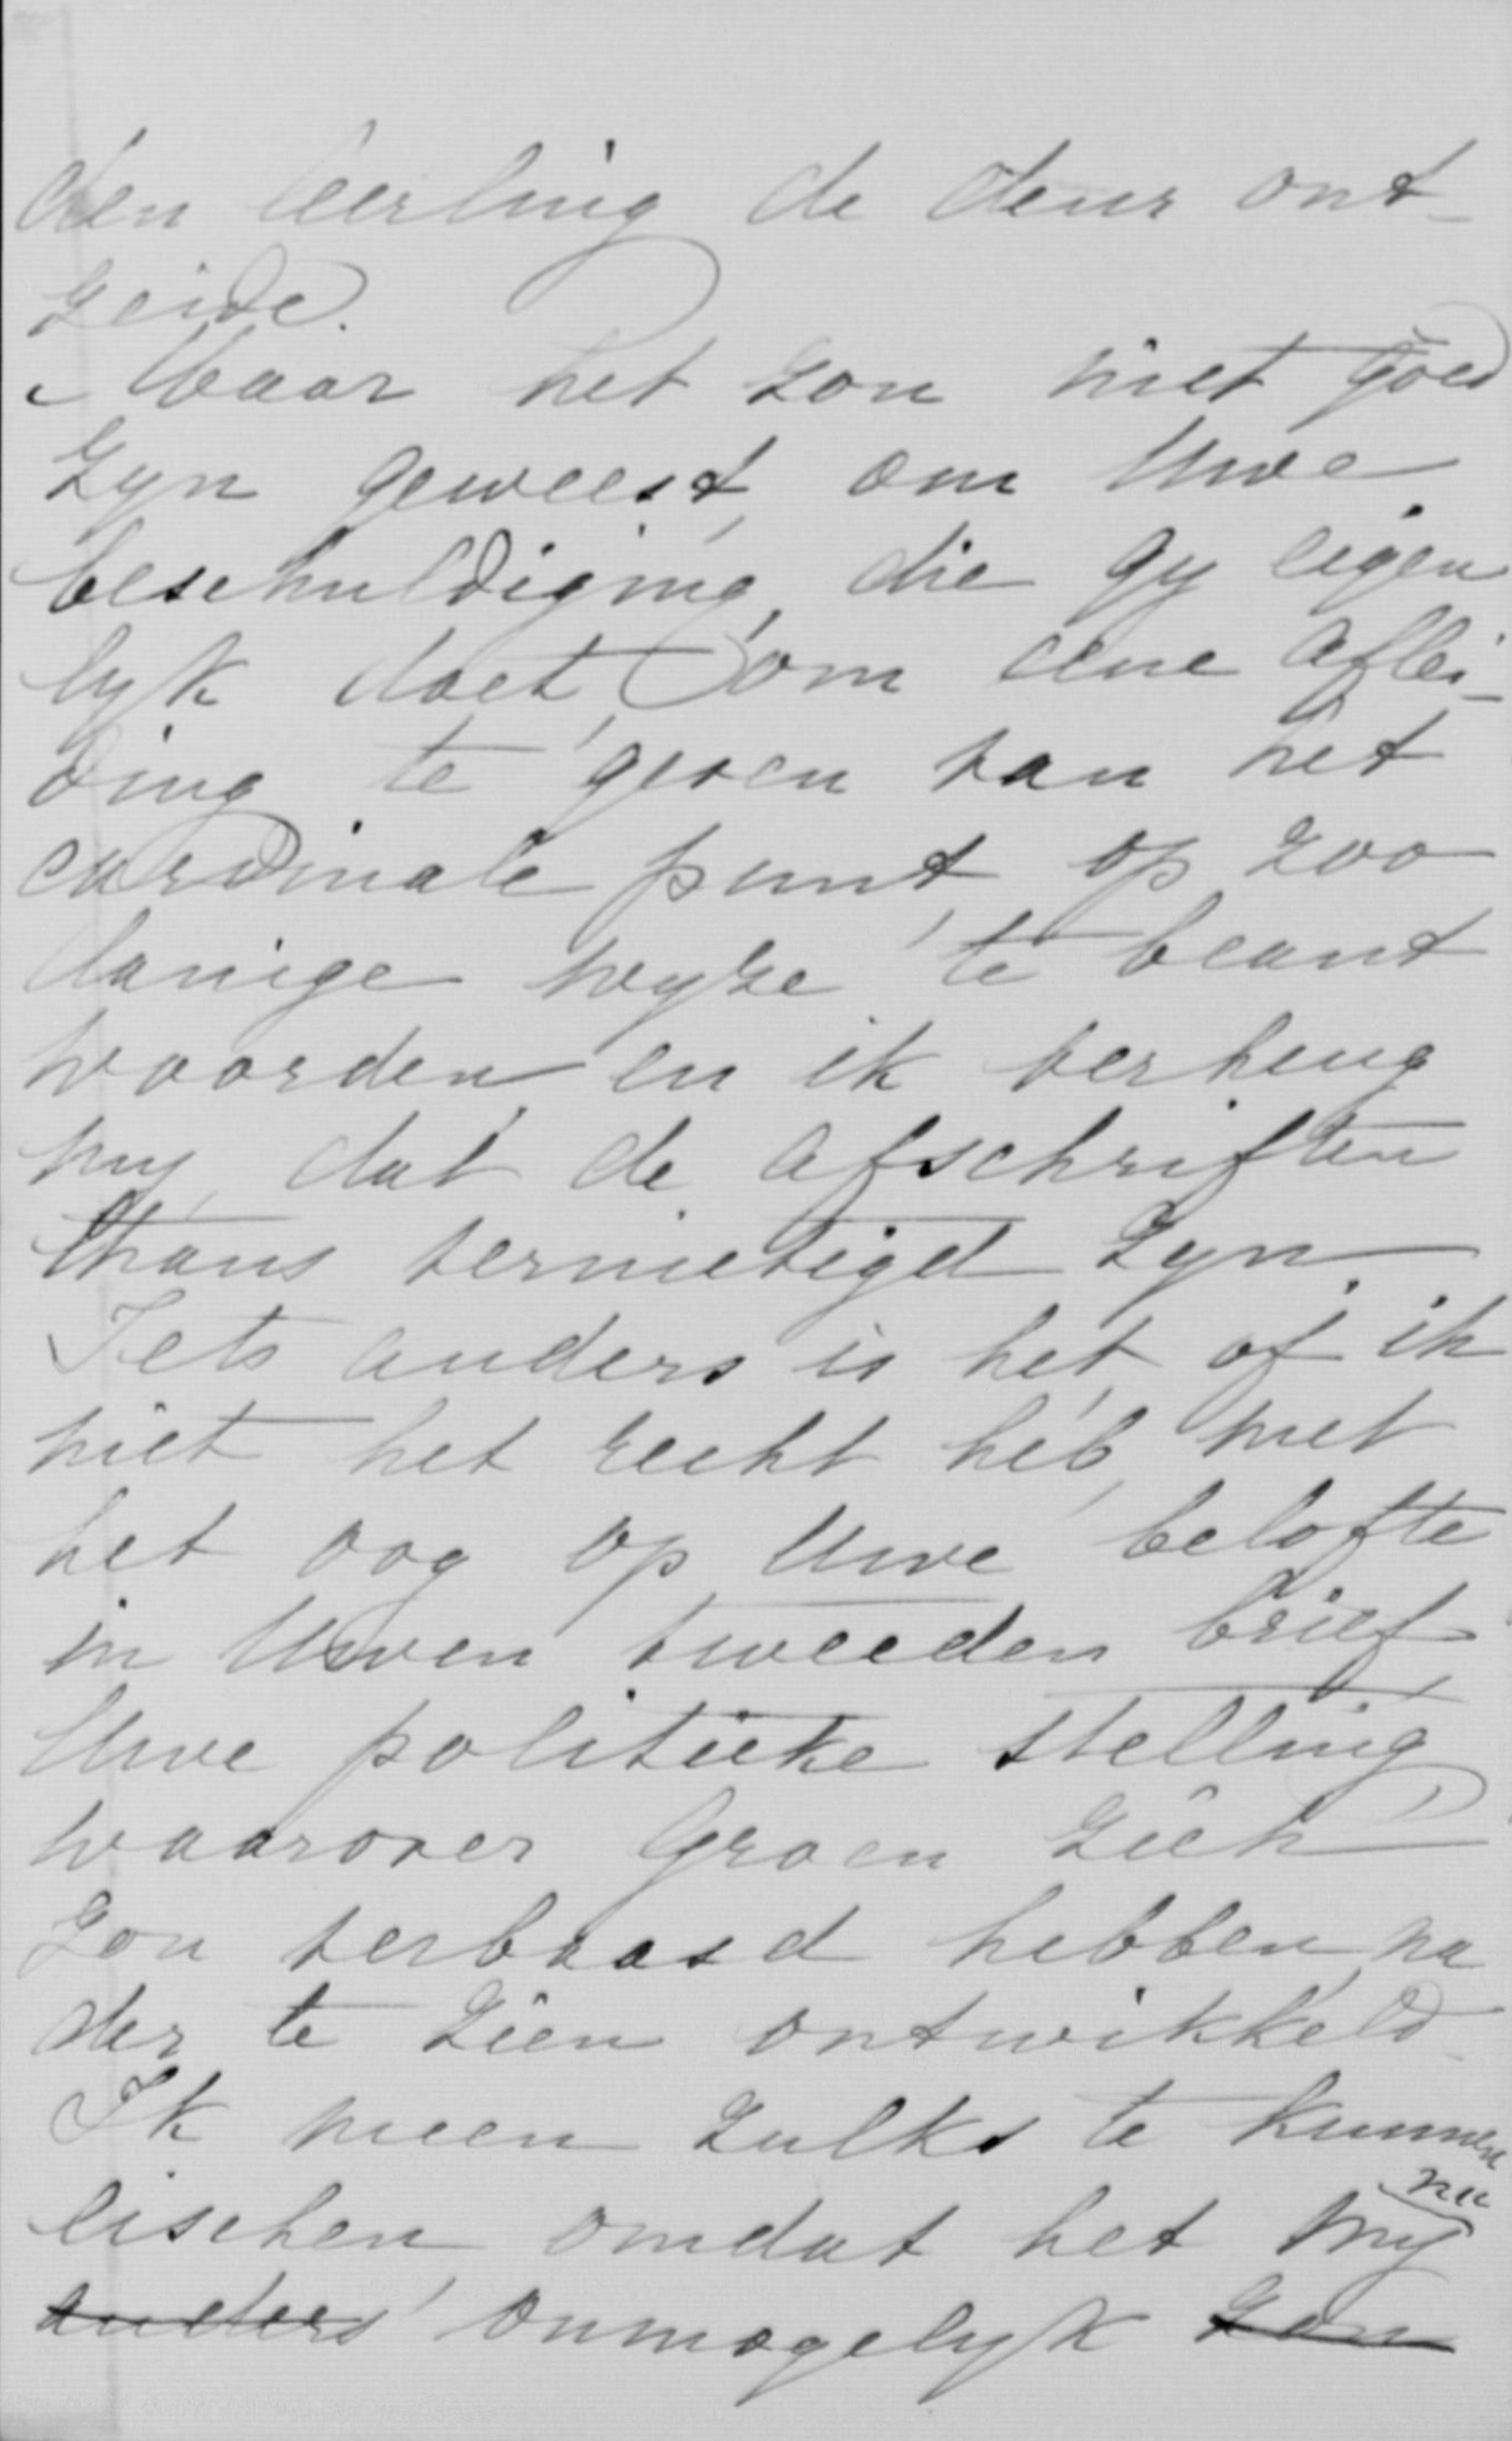 den leerling de deur ont-
zeide.
Maar het zou niet goed
zyn geweest, om Uwe
beschuldiging, die gy eigen
lyk doet om eene aflei-
ding te geven van het
cardinale punt, op zoo
danige wyze te beant
woorden, en ik verheug
my, dat de afschriften
thans vernietigd zyn.
Iets anders is het, of ik
niet het recht heb, met
het oog op Uwe belofte
in Uwen tweeden brief,
Uwe politieke stelling
waarover Groen zich
zou verbaasd hebben, na
der te zien ontwikkeld.
Ik meen zulks te kunnen
eischen, omdat het my nu
anders onmogelyk zou